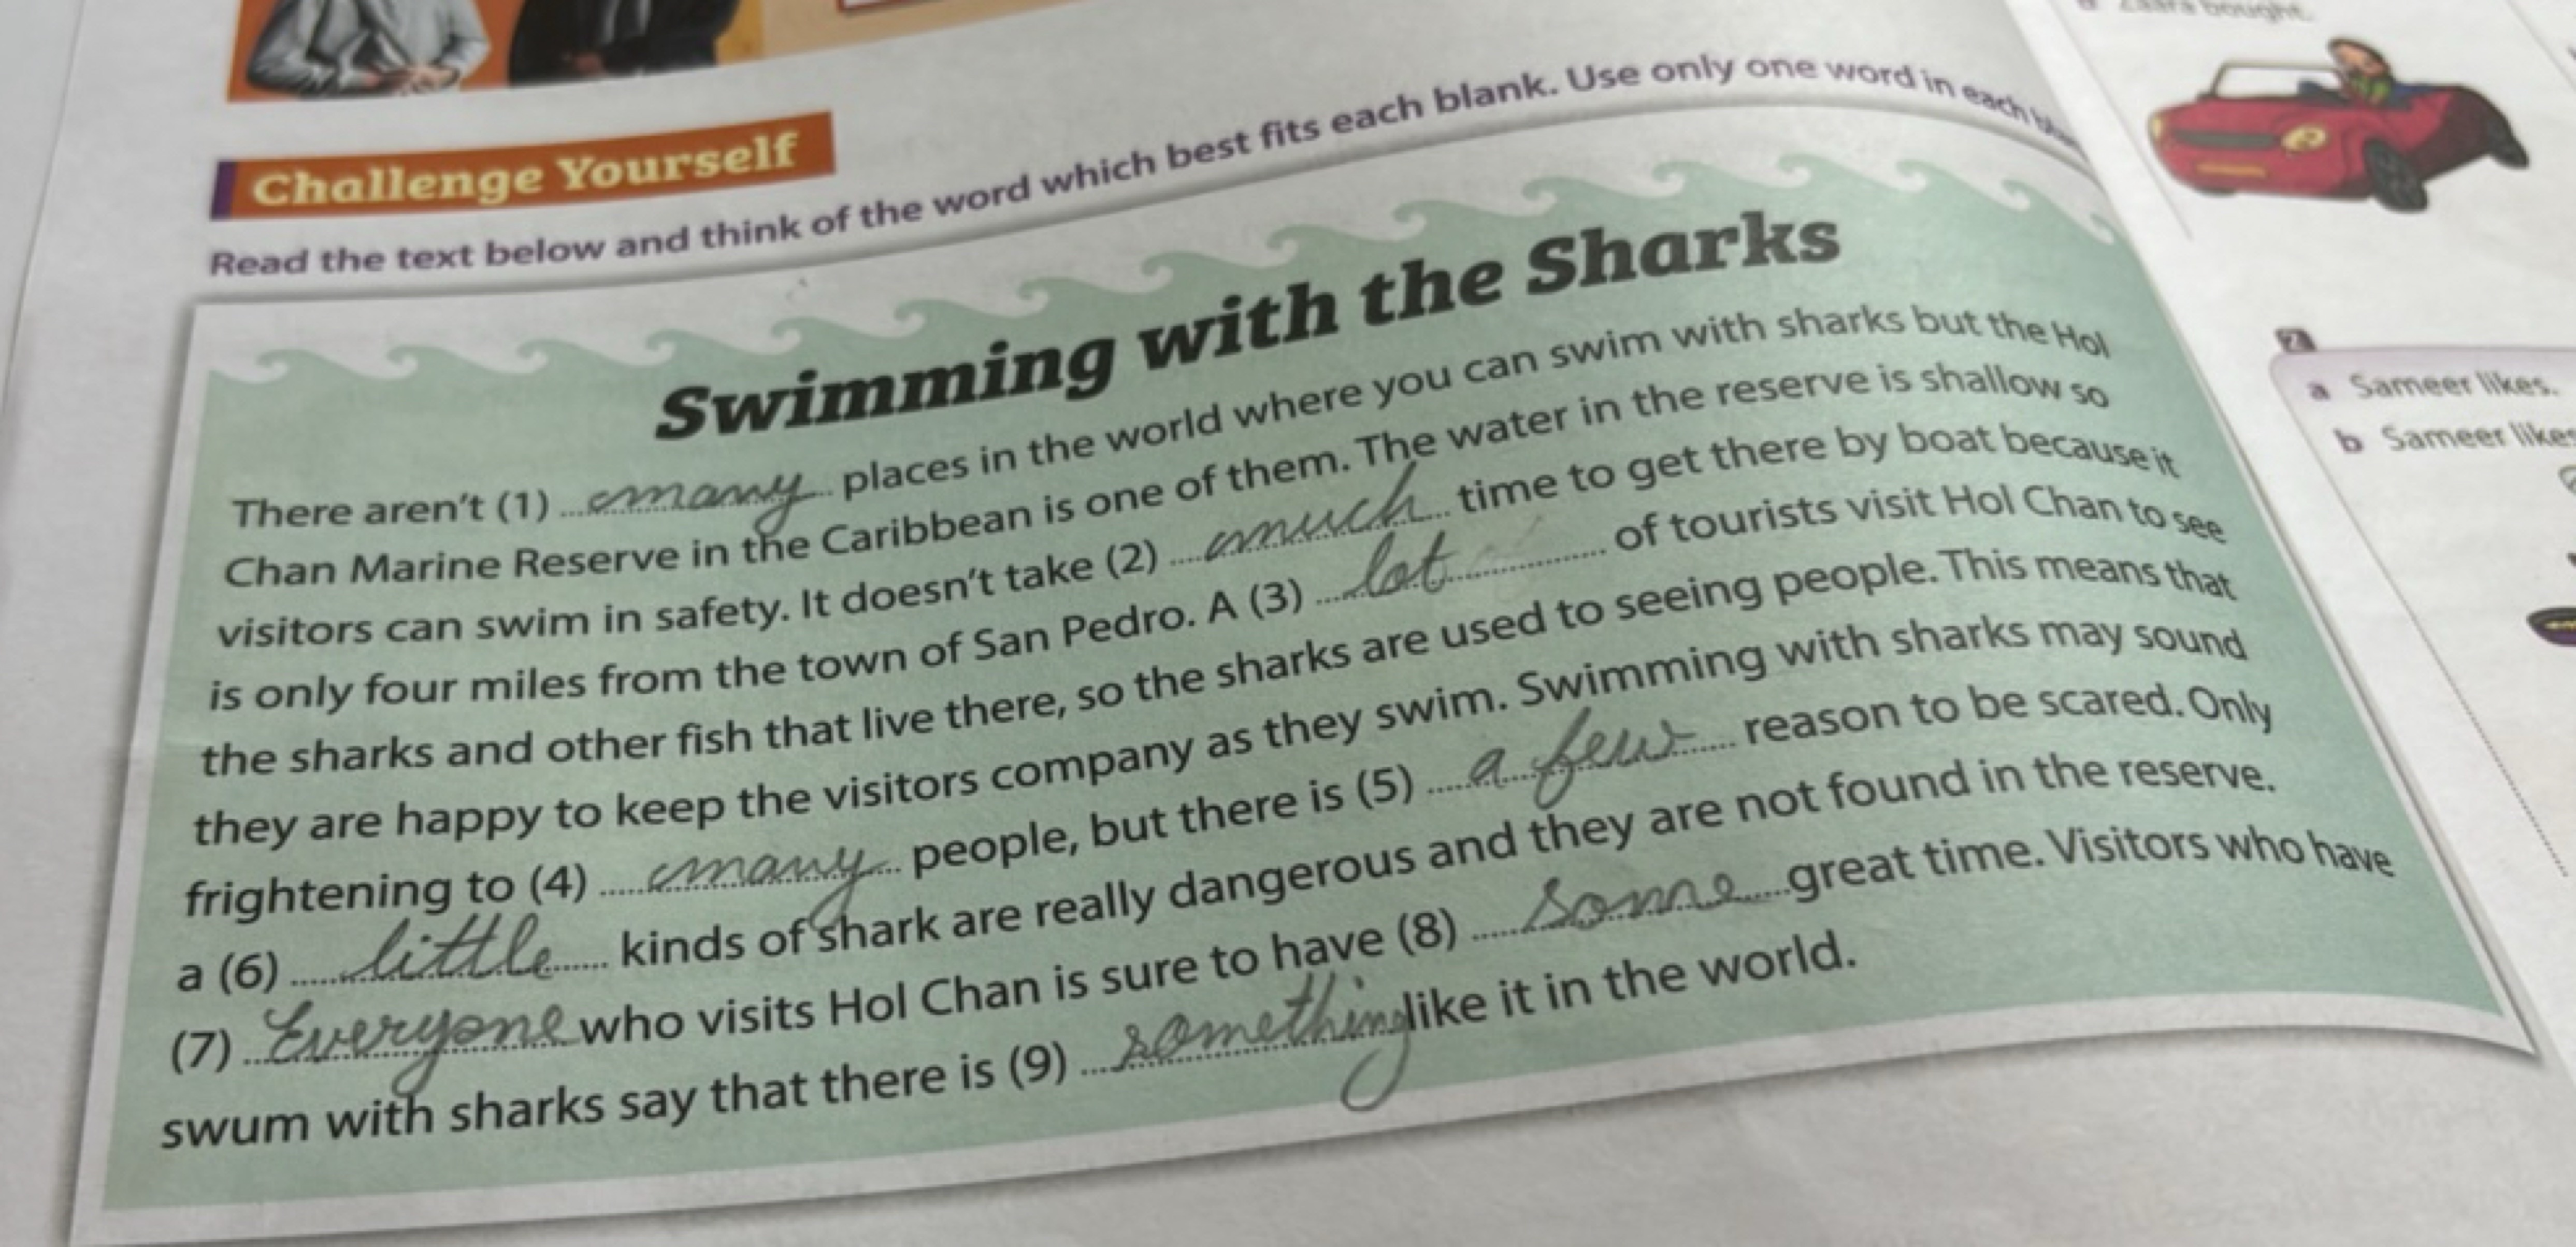 Zaara bought.
Challenge Yourself
Read the text below and think of the word which best fits each blank. Use only one word in each
Swimming with the Sharks
There aren't (1) many places in the world where you can swim with sharks but the Hol
Chan Marine Reserve in the Caribbean is one of them. The water in the reserve is shallow so
visitors can swim in safety. It doesn't take (2) much time to get there by boat because it
is only four miles from the town of San Pedro. A (3) lot of tourists visit Hol Chan to see
the sharks and other fish that live there, so the sharks are used to seeing people. This means that
they are happy to keep the visitors company as they swim. Swimming with sharks may sound
frightening to (4) many people, but there is (5) a few reason to be scared. Only
a (6) little kinds of shark are really dangerous and they are not found in the reserve.
(7) Everyone who visits Hol Chan is sure to have (8) some great time. Visitors who have
swum with sharks say that there is (9) something like it in the world.
2
a Sameer likes.
b Sameer likes